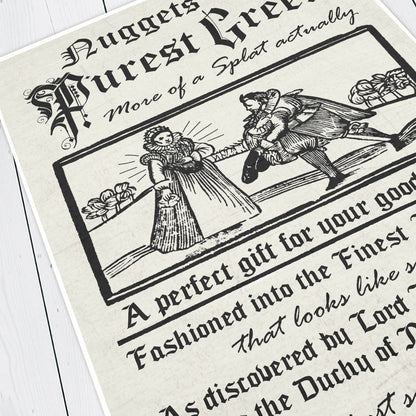 Nuggets
Purest Gree
More of a Splat actually
A perfect gift for your good
Fashioned into the Finest
that looks like s
As discovered by Lord
the Duchy of
st s